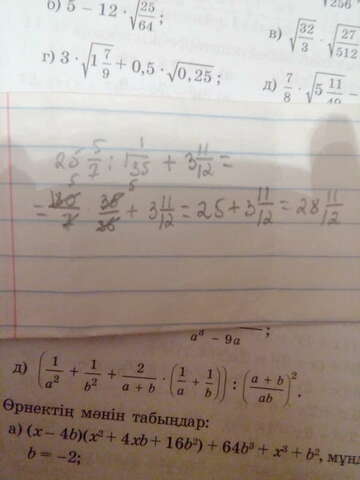 б) 5 − 12 · √(25/64);
√256
в) √(32/3) · √(27/512)
г) 3 · √(1 7/9) + 0,5 · √0,25;
д) 7/8 · √(5 11/49) −
25 5/7 : 1 1/35 + 3 11/12 =
= 180/7 · 35/36 + 3 11/12 = 25 + 3 11/12 = 28 11/12
a³ − 9a ;
д) (1/a² + 1/b² + 2/(a + b) · (1/a + 1/b)) : ((a + b)/ab)².
Өрнектің мәнін табыңдар:
а) (x − 4b)(x² + 4xb + 16b²) + 64b³ + x³ + b², мұнд
b = −2;